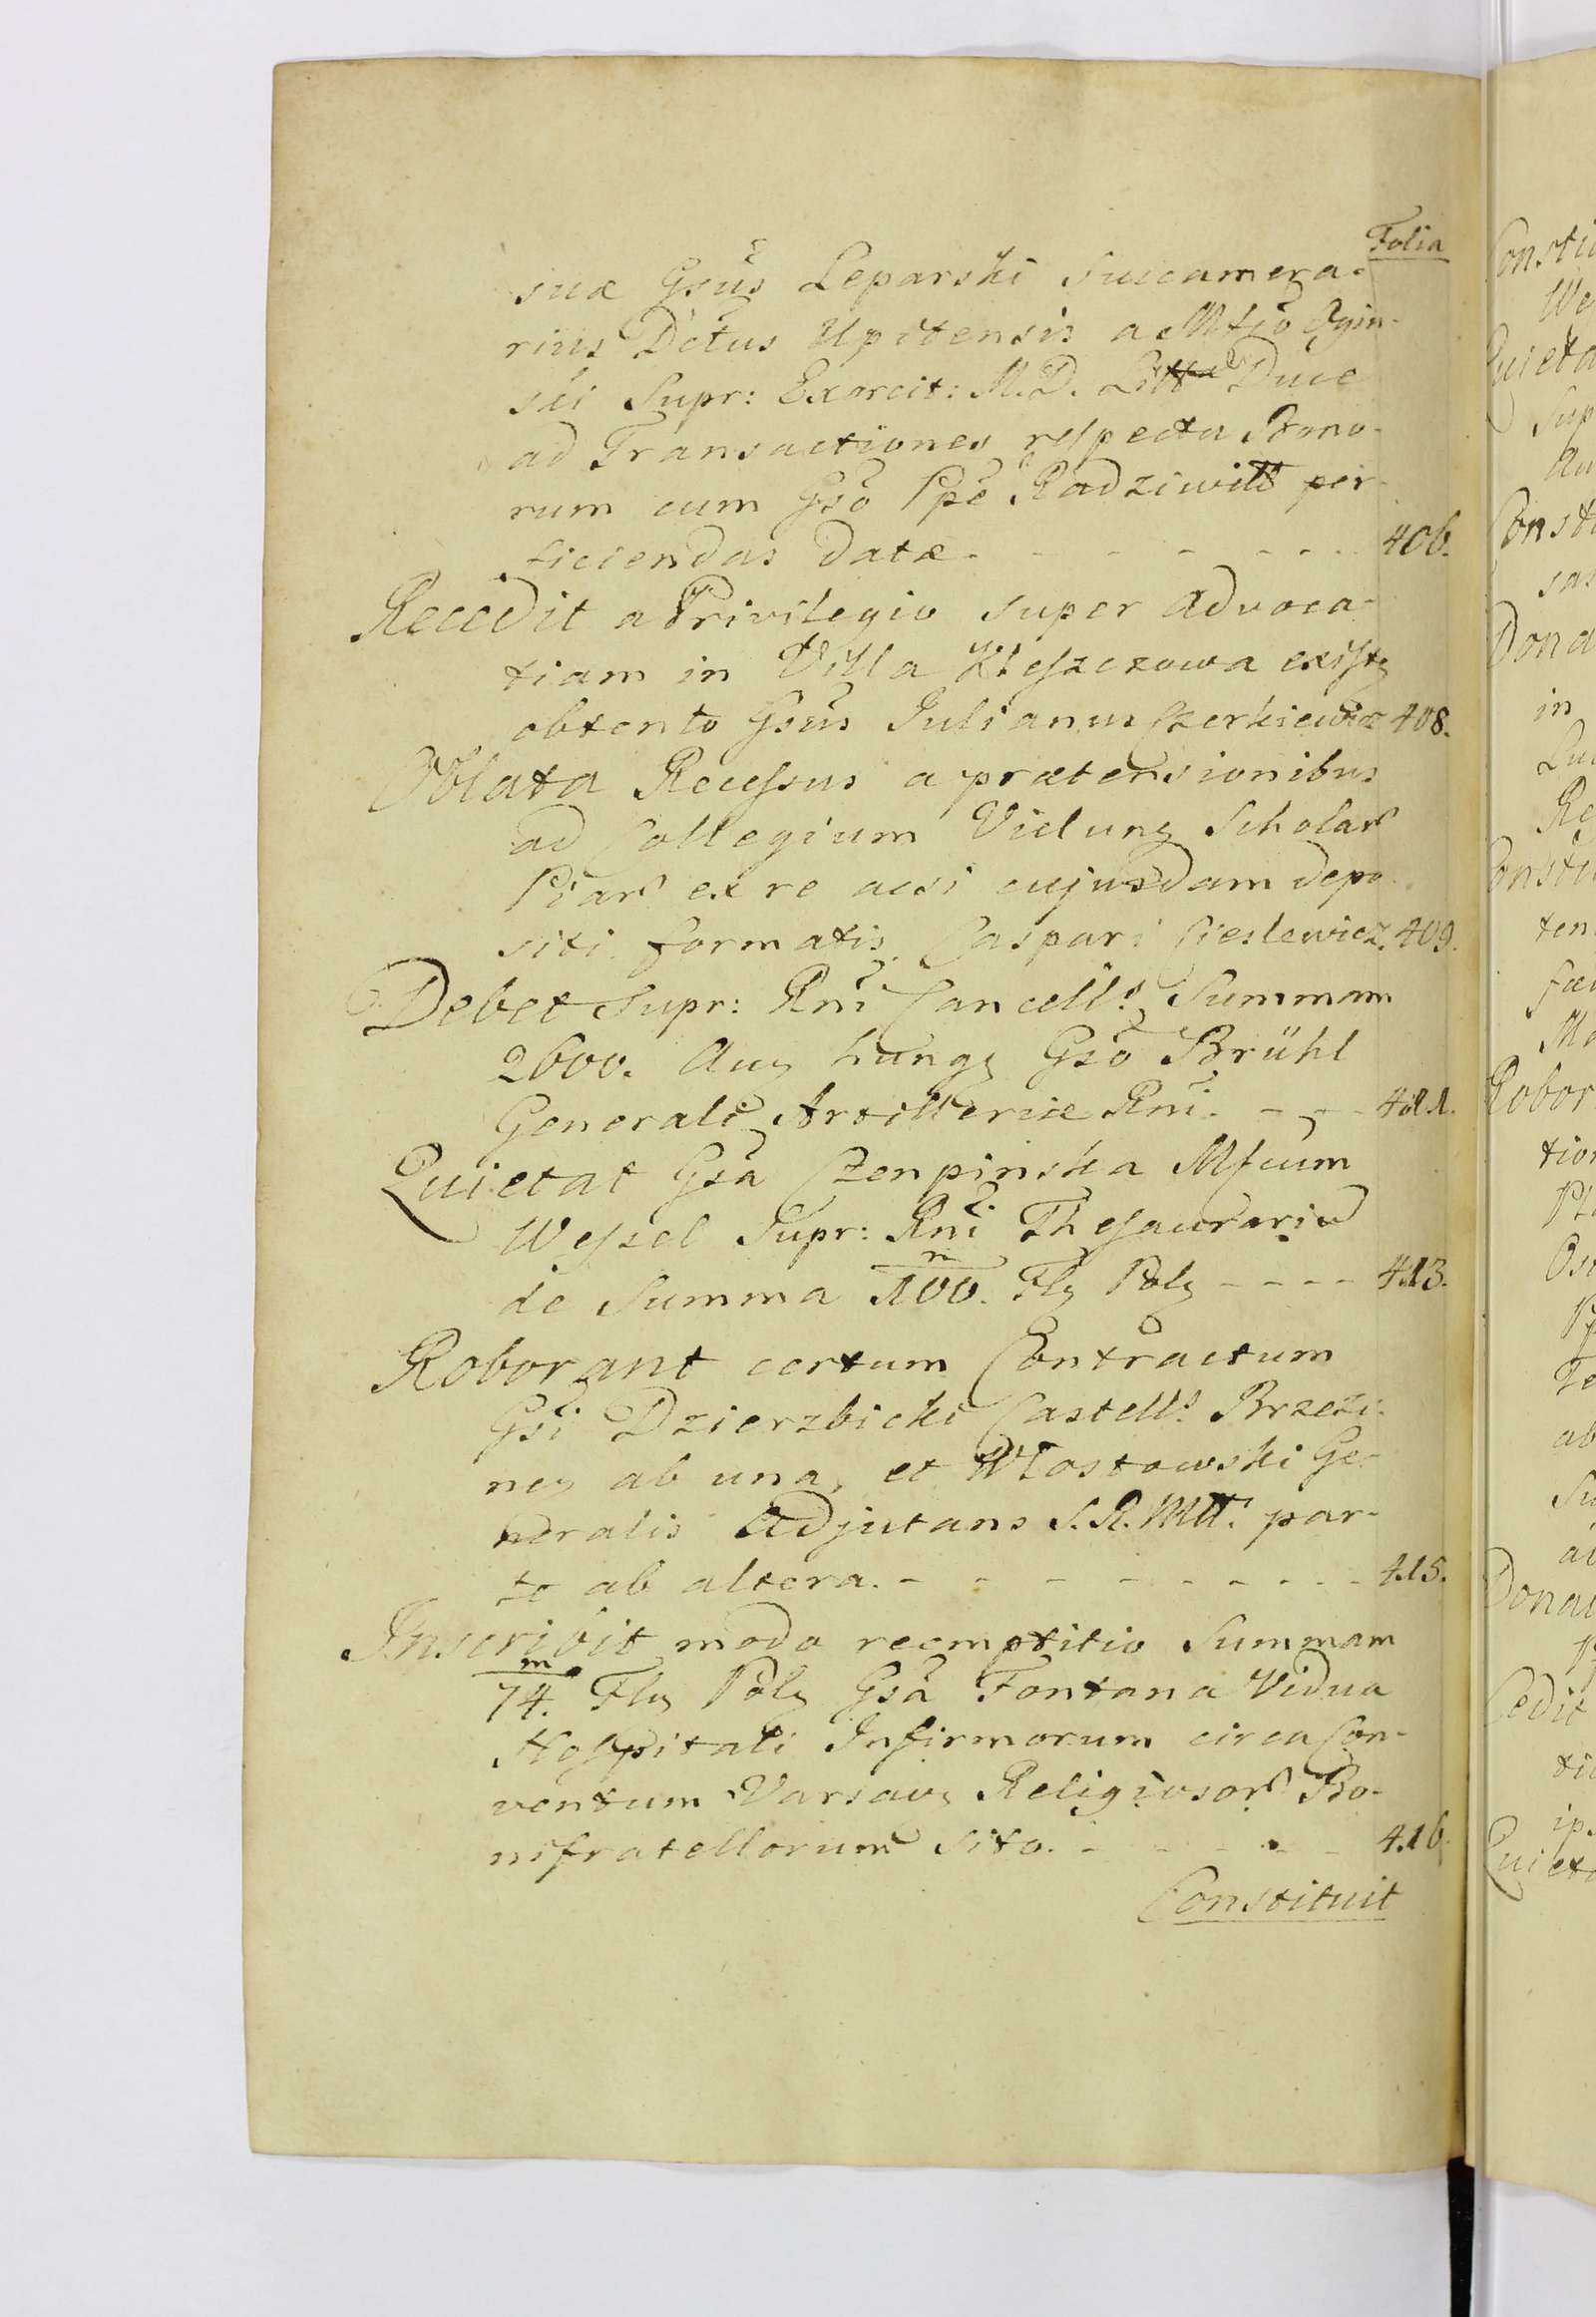 Folia
suæ Gsūs Leparski Succamera-
rius Dctus Upitensis a Mfcō Ogin-
ski Supr: Exercit: M. D. Litt. Duce
ad Transactiones respectu Bono-
rum cum Gsō Ppē Radziwiłł per-
ficiendas datæ. - - - - - - 406.
Recedit a Privilegio super advoca-
tiam in Villa Kleszczowa existg
obtento Gsūs Julianus Czerkiewicz 408.
Oblata Recessus a prætensionibus
ad Collegium Vielung Scholar
Piar ex re acsi cujusdam depo-
siti formatis. Caspari Cieslewicz. 409.
Debet Supr: Rnī Cancells Summam
2600. Aug hungg Gsō Brühl
Generali Artilleriæ Rnī. - - - 411.
Quietat Gsā Czenpinska Mfcum
Wessel Supr: Rnī Thesaurariu
de Summa 100.m Flg Polg - - - - 413.
Roborant certum Contractum
Gsī Dzierzbicki Castells Brzezi-
neg ab una, et Włostowski Ge-
neralis Adjutans S. R. Mtt. par-
te ab altera. - - - - - - - - 415.
Inscribit modo reemptitio Summam
74.m Flg Polg Gsā Fontana Vidua
Hospitali Infirmorum circa Con-
ventum Varsavg Religiosor Bo-
nifratellorum sito. - - - - - 416.
Constituit
Constit
We
Quieta
Sup
Au
Const
sas
Dona
in
Re
Constit
ten
Robor
tion
ab
Donat
Cedit
tio
ips
Quieta